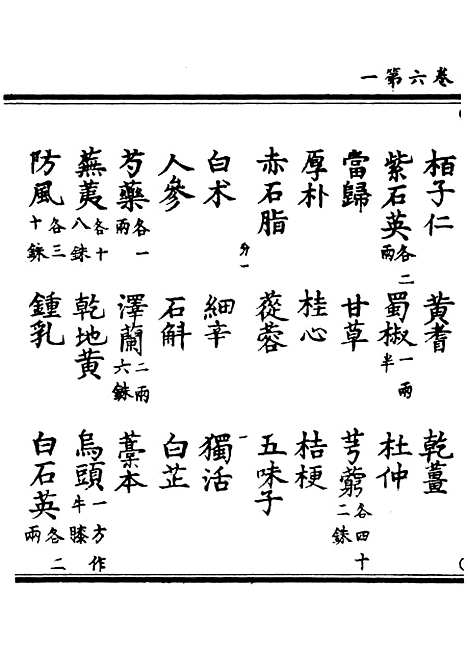 卷六第一
栢子仁 黄耆 乾薑
紫石英各二兩 蜀椒一兩半 杜仲
當歸 甘草 芎藭各四十二銖
厚朴 桂心 桔梗
赤石脂 蓯蓉 五味子
分一 一
白术 細辛 獨活
人參 石斛 白芷
芍藥各一兩 澤蘭二兩六銖 藁本
蕪荑各十八銖 乾地黄 烏頭一方作牛膝
防風各三十銖 鍾乳 白石英各二兩